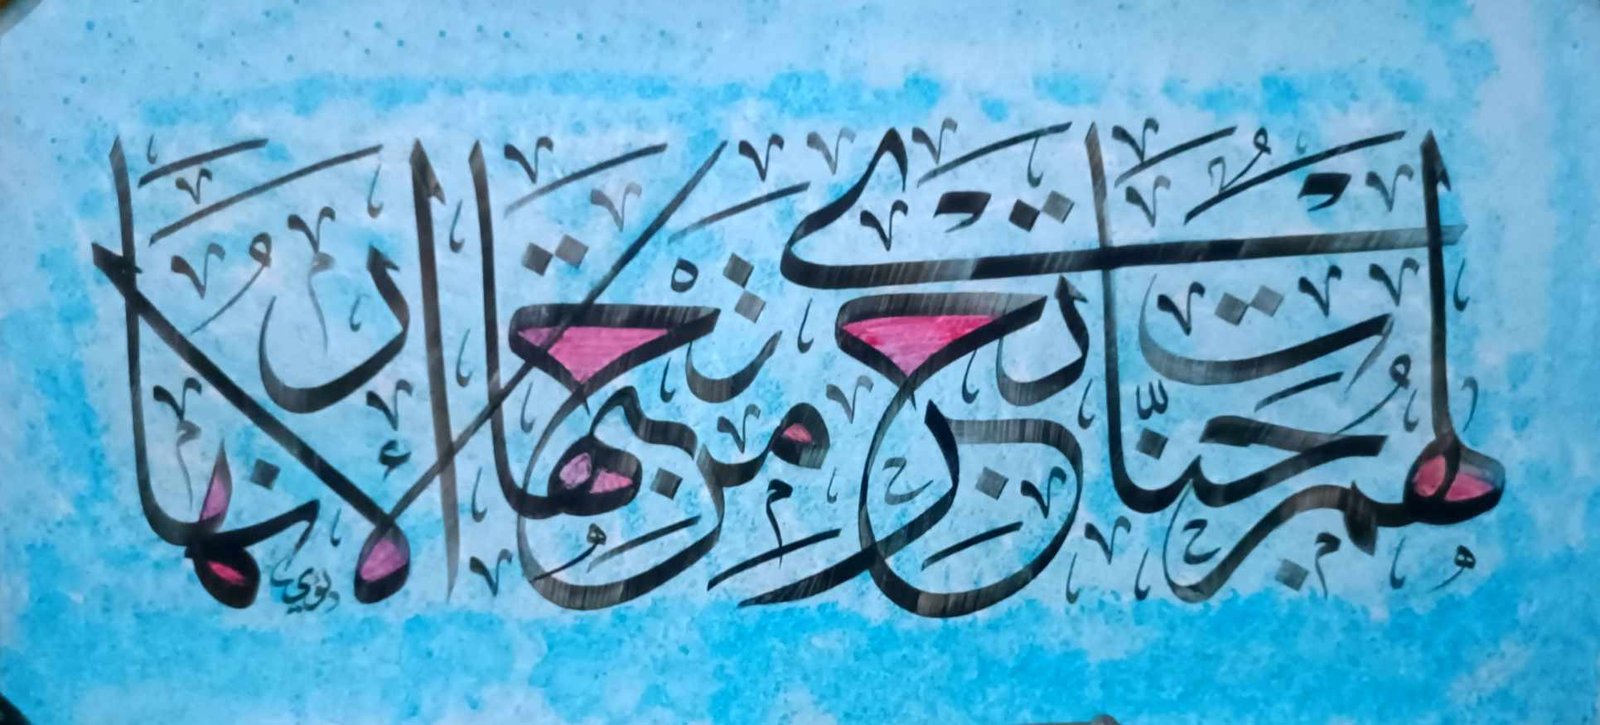 لَهُمْ جَنَّاتٌ تَجْرِي مِنْ تَحْتِهَا الْأَنْهَارُ